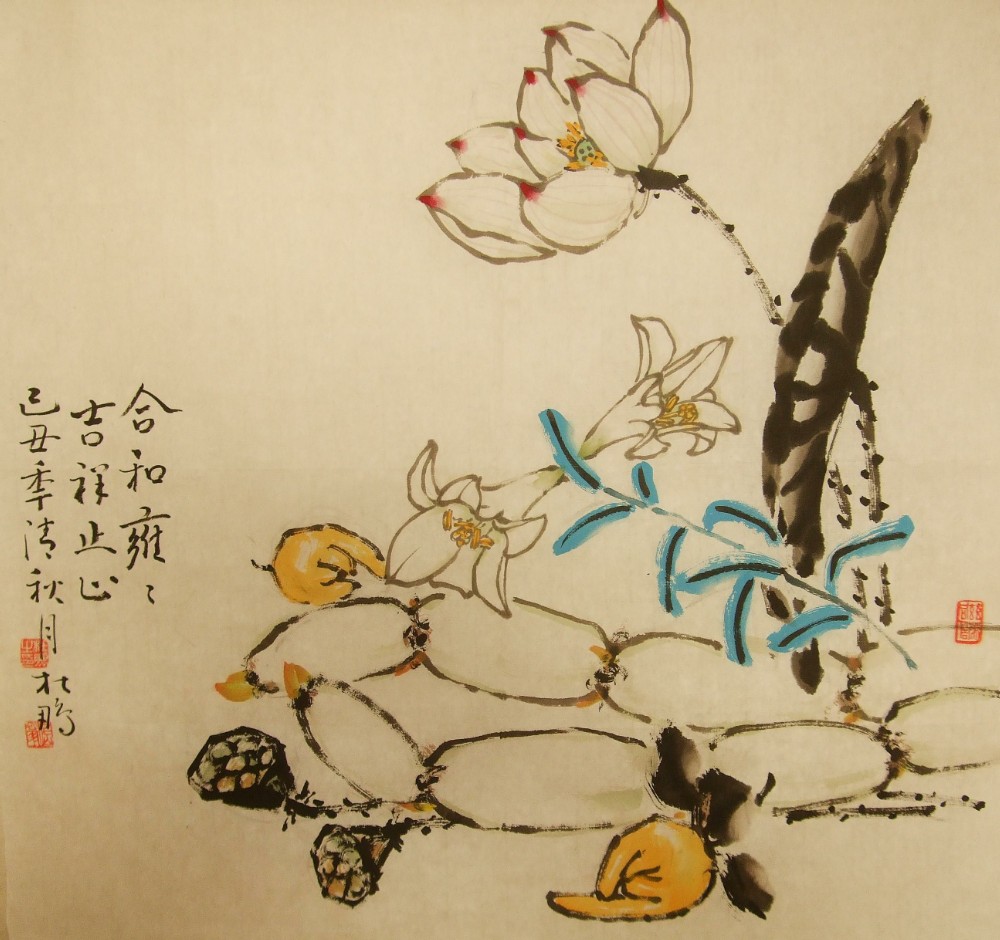 合和雍〻
吉祥止止
己丑秊清秋月
杜鵬